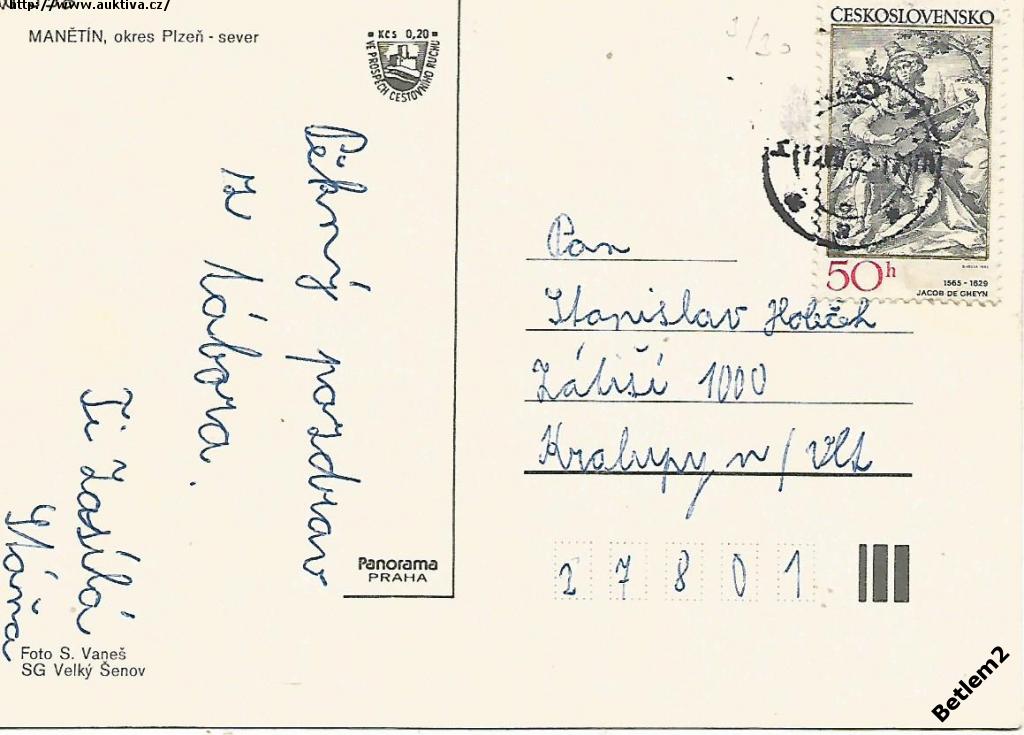 http://www.auktiva.cz/
MANĚTÍN, okres Plzeň - sever
Kčs 0,20
VE PROSPĚCH CESTOVNÍHO RUCHU
Pěkný pozdrav
z tábora.
Ti zasílá
Stáňa
Foto S. Vaneš
SG Velký Šenov
Panorama
PRAHA
ČESKOSLOVENSKO
50h
1565 - 1629
JACOB DE GHEYN
Pan
Stanislav Holeček
Zátiší 1000
Kralupy n/Vlt
27801
Betlem2